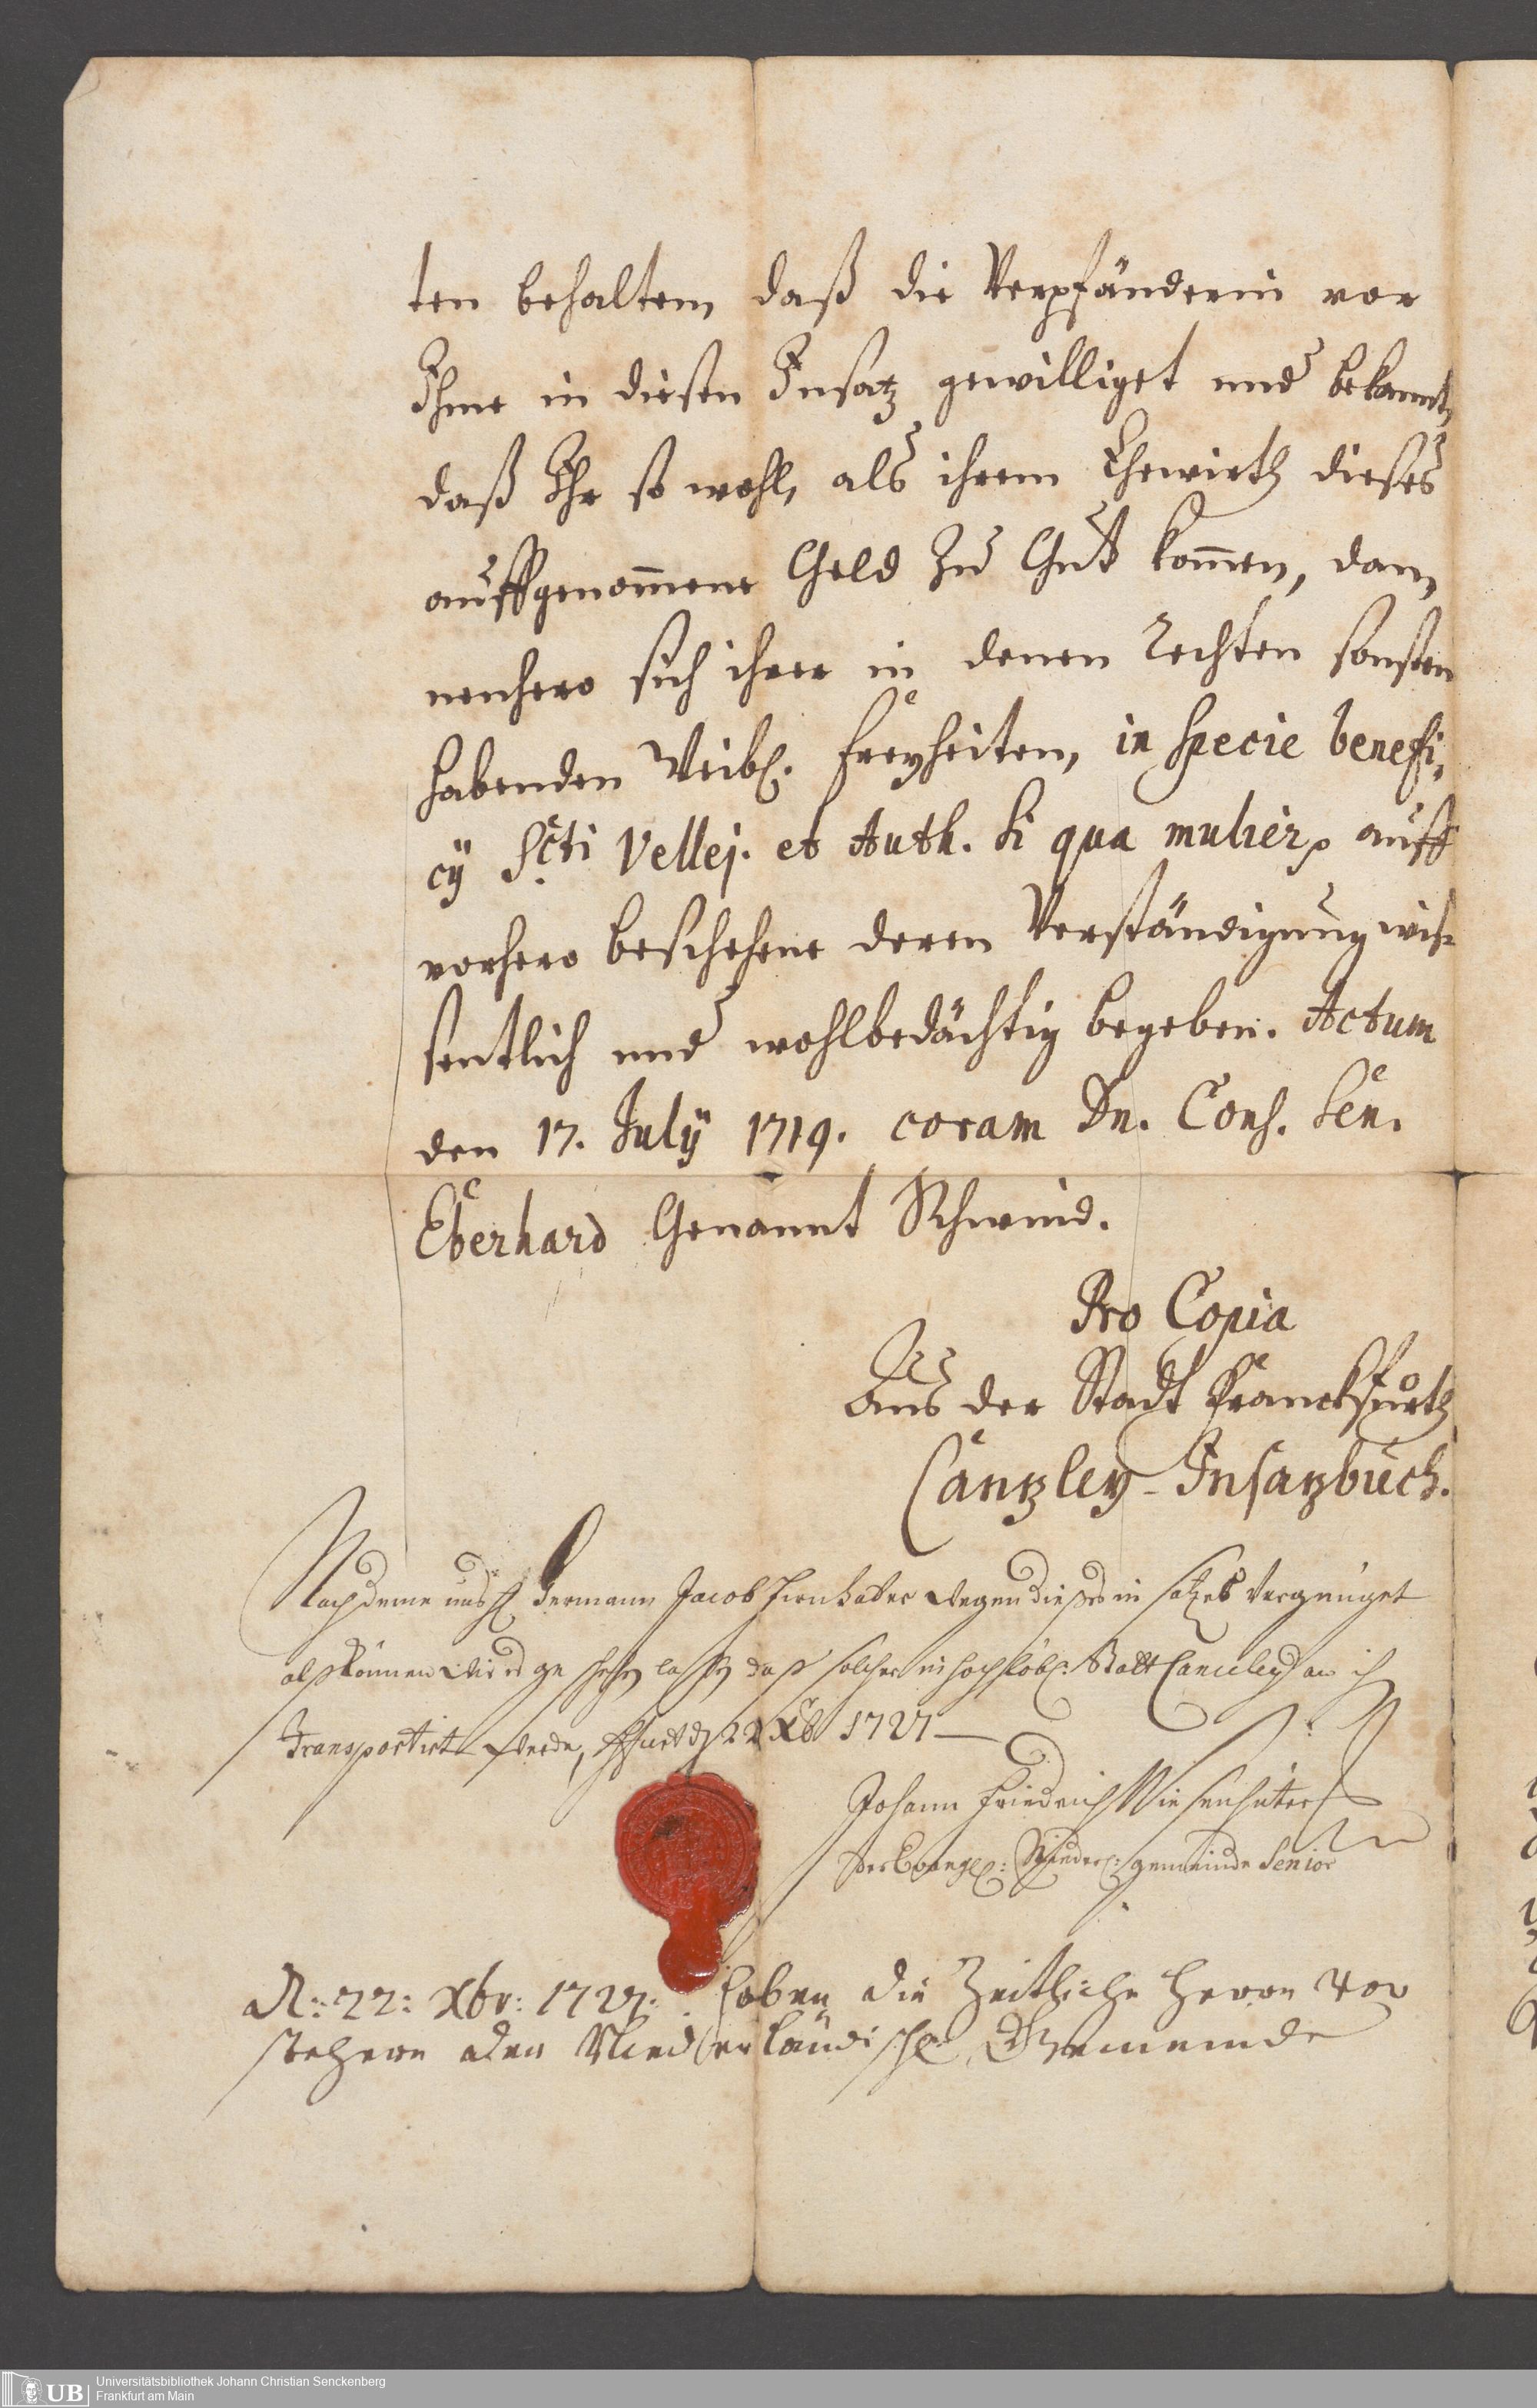 ten behalten, daß die Verpfänderin vor
Ihme in diesen Insatz gewilliget und bekannt,
daß Ihr so wohl, als ihrem Ehewirth dieses
auffgenom̅ene Geld zu Gut kom̅en, dan,
nenhero sich ihrer in denen Rechten sonsten
habenden Weibl. Freyheiten, in specie benefi,
cÿ Scti Vellej. et Auth. si qua mulier auff
vorhero beschehene deren Verständigung wis-
sentlich und wohlbedächtig begeben. Actum
den 17. Julÿ 1719. coram Dn. Cons. Sen.
Eberhard Genannt Schwind.
Pro Copia
Aus der Stadt Franckfurth
Cantzley-Insatzbuch.
Nachdeme uns H Hermann Jacob Firnhaber wegen dießes in satzes vergnüget
alß können wir es geschehen laßen daß solcher in hochlöbl: Statt Canceley an ihn
Transportirt werde, ffurt d 22 Xb 1727
Johann Friedrich Wiesenhüter
der Evangel: Niederl: gemeinde Senior
A: 22: Xbr: 1727: haben die Zeitliche Herrn Vor
stehern der Niederländische Gemeinde
Universitätsbibliothek Johann Christian Senckenberg
UB Frankfurt am Main